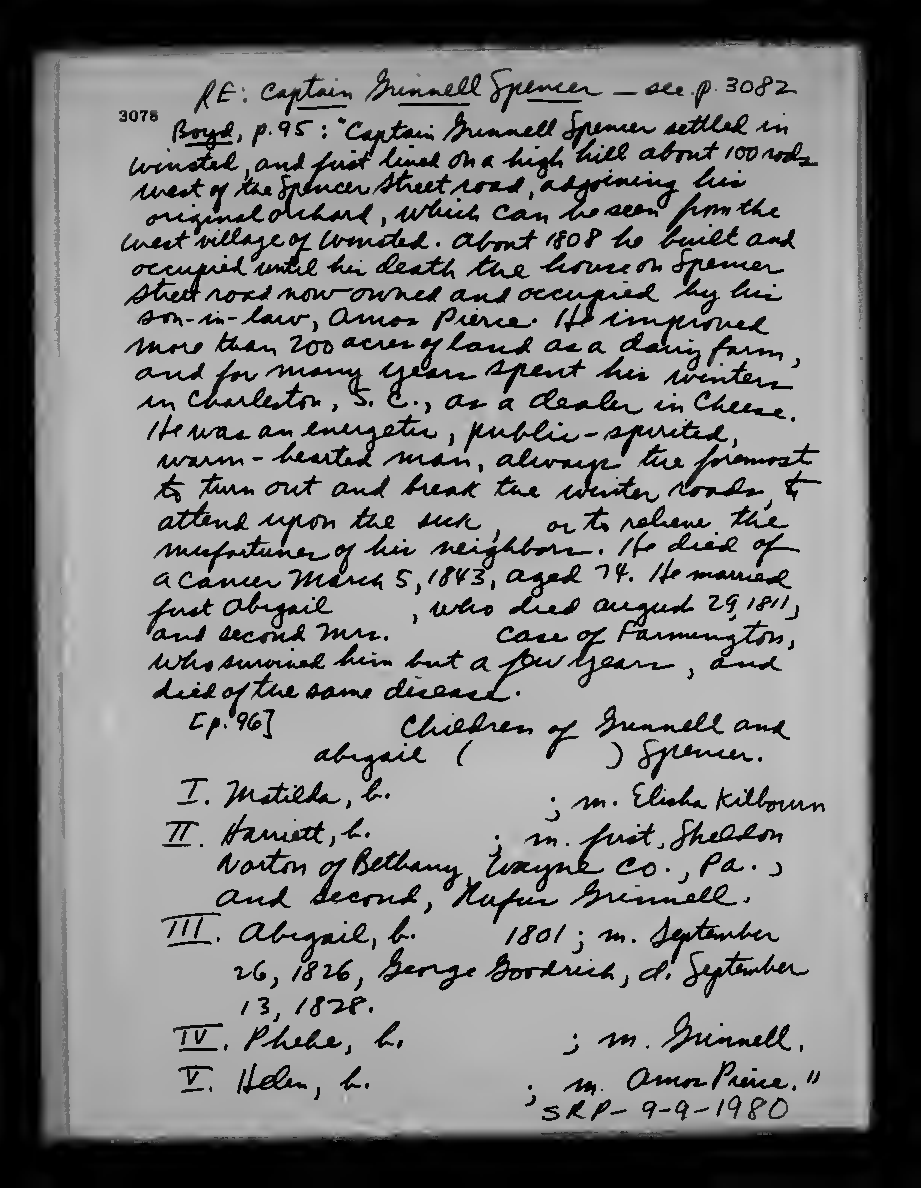 RE: Captain Grinnell Spencer — see p. 3082
3078
Boyd, p. 95: "Captain Grinnell Spencer settled in
Winsted, and first lived on a high hill about 100 rods
west of the Spencer Street road, adjoining his
original orchard, which can be seen from the
west village of Winsted. About 1808 he built and
occupied until his death the house on Spencer
Street road now owned and occupied by his
son-in-law, Amos Pierce. He improved
more than 200 acres of land as a dairy farm,
and for many years spent his winters
in Charleston, S. C., as a dealer in Cheese.
He was an energetic, public-spirited,
warm-hearted man, always the foremost
to turn out and break the winter roads, to
attend upon the sick, or to relieve the
misfortunes of his neighbors. He died of
a cancer March 5, 1843, aged 74. He married
first Abigail , who died August 29, 1811,
and second Mrs. Case of Farmington,
who survived him but a few years, and
died of the same disease.
[p. 96] Children of Grinnell and
Abigail ( ) Spencer.
I. Matilda, b. ; m. Elisha Kilbourn
II. Harriett, b. ; m. first, Sheldon
Norton of Bethany, Wayne Co., Pa.,
and second, Rufus Grinnell.
III. Abigail, b. 1801; m. September
26, 1826, George Goodrich, d. September
13, 1828.
IV. Phebe, b. ; m. Grinnell.
V. Helen, b. ; m. Amos Pierce."
SRP - 9-9-1980